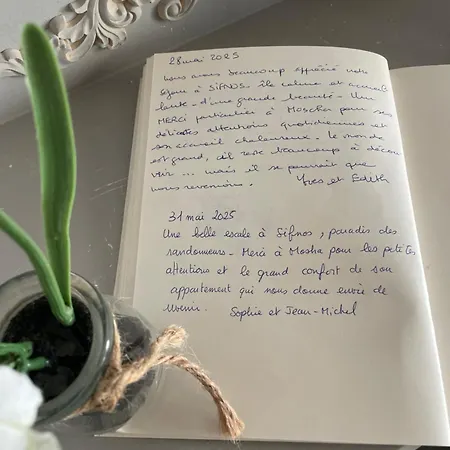 28 mai 2025
Nous avons beaucoup apprécié notre
séjour à SIFNOS, île calme et accueil-
lante - d'une grande beauté - Un
MERCI particulier à Moscha pour ses
délicates attentions quotidiennes et
son accueil chaleureux. Le monde
est grand, il reste beaucoup à décou
vrir ... mais il se pourrait que
nous revenions. Yves et Edith
31 mai 2025
Une belle escale à Sifnos, paradis des
randonneurs - Merci à Mosha pour les petites
attentions et le grand confort de son
appartement qui nous donne envie de
revenir. Sophie et Jean-Michel